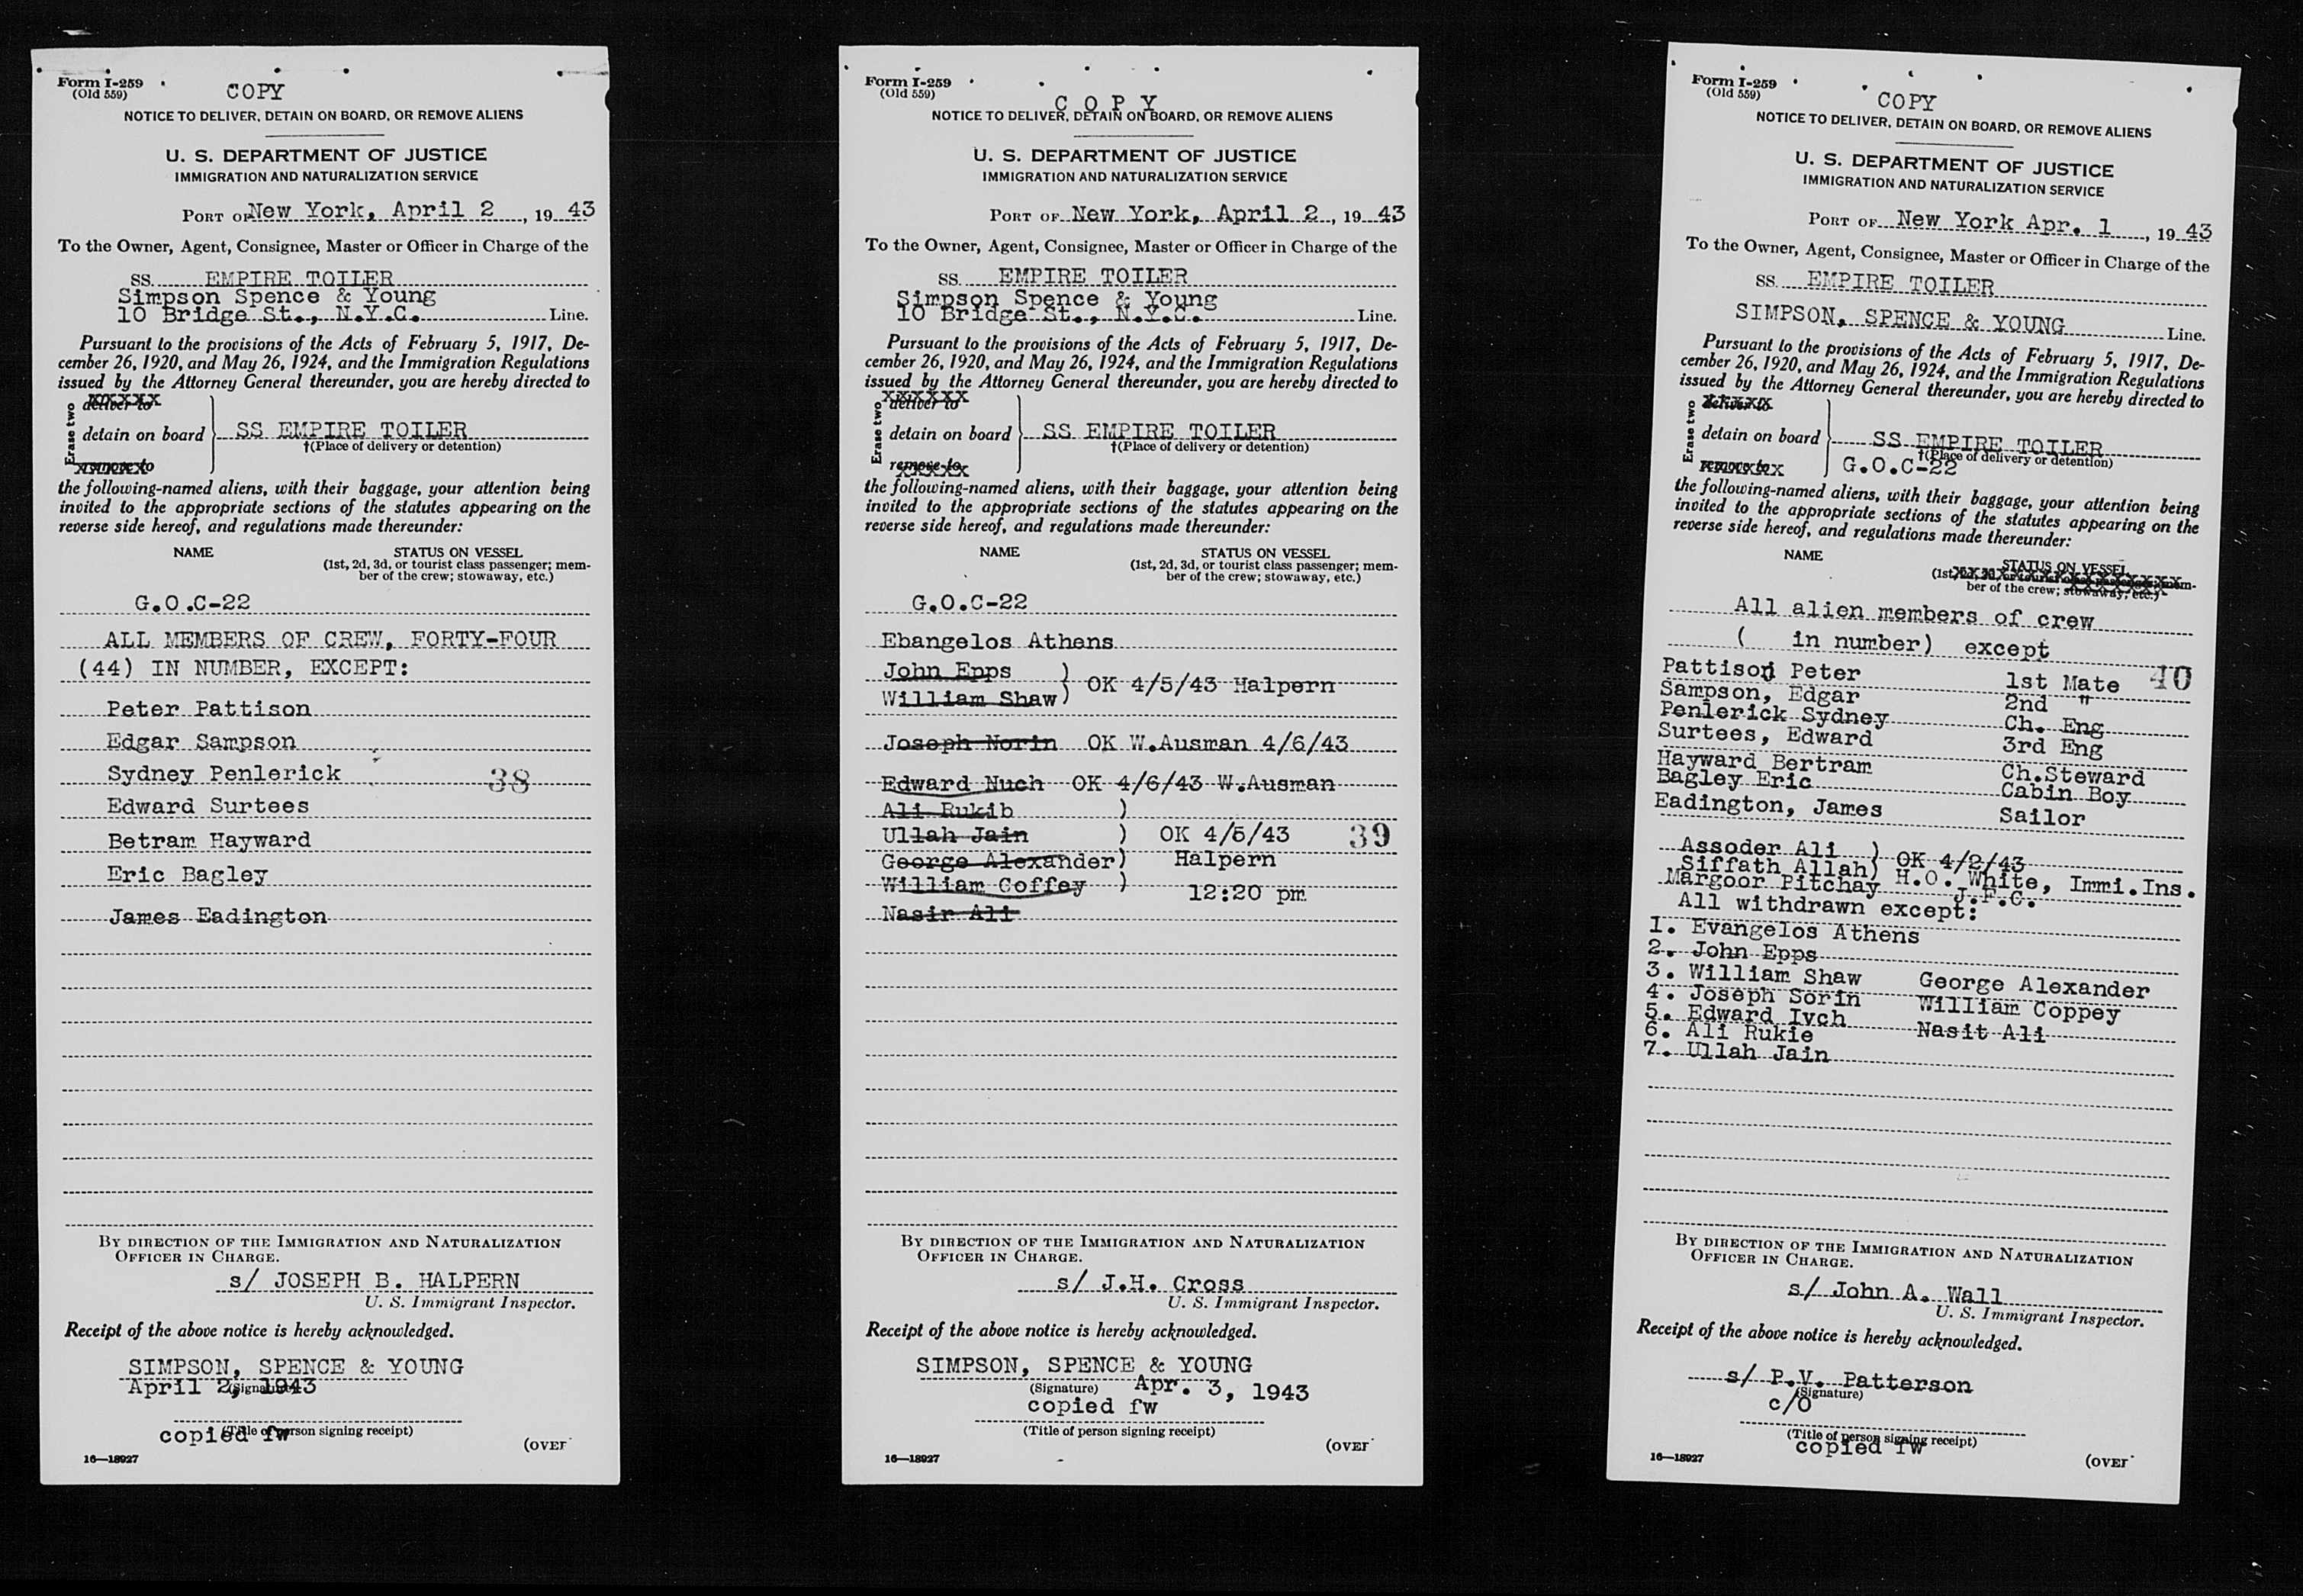 Form I-259
(Old 559)
COPY
NOTICE TO DELIVER, DETAIN ON BOARD, OR REMOVE ALIENS
U. S. DEPARTMENT OF JUSTICE
IMMIGRATION AND NATURALIZATION SERVICE
PORT OF New York, April 2, 19 43
To the Owner, Agent, Consignee, Master or Officer in Charge of the
SS. EMPIRE TOILER
Simpson Spence & Young
10 Bridge St., N.Y.C. Line.
Pursuant to the provisions of the Acts of February 5, 1917, De-
cember 26, 1920, and May 26, 1924, and the Immigration Regulations
issued by the Attorney General thereunder, you are hereby directed to
Erase two
deliver to
detain on board SS EMPIRE TOILER
†(Place of delivery or detention)
remove to
the following-named aliens, with their baggage, your attention being
invited to the appropriate sections of the statutes appearing on the
reverse side hereof, and regulations made thereunder:
NAME STATUS ON VESSEL
(1st, 2d, 3d, or tourist class passenger; mem-
ber of the crew; stowaway, etc.)
G.O.C-22
ALL MEMBERS OF CREW, FORTY-FOUR
(44) IN NUMBER, EXCEPT:
Peter Pattison
Edgar Sampson
Sydney Penlerick 38
Edward Surtees
Betram Hayward
Eric Bagley
James Eadington
BY DIRECTION OF THE IMMIGRATION AND NATURALIZATION
OFFICER IN CHARGE.
s/ JOSEPH B. HALPERN
U. S. Immigrant Inspector.
Receipt of the above notice is hereby acknowledged.
SIMPSON, SPENCE & YOUNG
April 2, 1943
(Signature)
copied fw
(Title of person signing receipt)
(OVER
16—18927
Form I-259
(Old 559)
COPY
NOTICE TO DELIVER, DETAIN ON BOARD, OR REMOVE ALIENS
U. S. DEPARTMENT OF JUSTICE
IMMIGRATION AND NATURALIZATION SERVICE
PORT OF New York, April 2, 19 43
To the Owner, Agent, Consignee, Master or Officer in Charge of the
SS. EMPIRE TOILER
Simpson Spence & Young
10 Bridge St., N.Y.C. Line.
Pursuant to the provisions of the Acts of February 5, 1917, De-
cember 26, 1920, and May 26, 1924, and the Immigration Regulations
issued by the Attorney General thereunder, you are hereby directed to
Erase two
deliver to
detain on board SS EMPIRE TOILER
†(Place of delivery or detention)
remove to
the following-named aliens, with their baggage, your attention being
invited to the appropriate sections of the statutes appearing on the
reverse side hereof, and regulations made thereunder:
NAME STATUS ON VESSEL
(1st, 2d, 3d, or tourist class passenger; mem-
ber of the crew; stowaway, etc.)
G.O.C-22
Ebangelos Athens
John Epps )
William Shaw) OK 4/5/43 Halpern
Joseph Norin OK W.Ausman 4/6/43
Edward Nuch OK 4/6/43 W.Ausman
Ali Rukib )
Ullah Jain ) OK 4/5/43 39
George Alexander) Halpern
William Coffey ) 12:20 pm
Nasir Ali
BY DIRECTION OF THE IMMIGRATION AND NATURALIZATION
OFFICER IN CHARGE.
s/ J.H. Cross
U. S. Immigrant Inspector.
Receipt of the above notice is hereby acknowledged.
SIMPSON, SPENCE & YOUNG
(Signature) Apr. 3, 1943
copied fw
(Title of person signing receipt)
(OVER
16—18927
Form I-259
(Old 559)
COPY
NOTICE TO DELIVER, DETAIN ON BOARD, OR REMOVE ALIENS
U. S. DEPARTMENT OF JUSTICE
IMMIGRATION AND NATURALIZATION SERVICE
PORT OF New York Apr. 1, 19 43
To the Owner, Agent, Consignee, Master or Officer in Charge of the
SS. EMPIRE TOILER
SIMPSON, SPENCE & YOUNG Line.
Pursuant to the provisions of the Acts of February 5, 1917, De-
cember 26, 1920, and May 26, 1924, and the Immigration Regulations
issued by the Attorney General thereunder, you are hereby directed to
Erase two
deliver to
detain on board SS EMPIRE TOILER
†(Place of delivery or detention)
remove to G.O.C-22
the following-named aliens, with their baggage, your attention being
invited to the appropriate sections of the statutes appearing on the
reverse side hereof, and regulations made thereunder:
NAME STATUS ON VESSEL
(1st, 2d, 3d, or tourist class passenger; mem-
ber of the crew; stowaway, etc.)
All alien members of crew
( in number) except
Pattison Peter 1st Mate 40
Sampson, Edgar 2nd "
Penlerick Sydney Ch. Eng
Surtees, Edward 3rd Eng
Hayward Bertram Ch.Steward
Bagley Eric Cabin Boy
Eadington, James Sailor
Assoder Ali ) OK 4/2/43
Siffath Allah) H.O. White, Immi.Ins.
Margoor Pitchay J.F.C.
All withdrawn except:
1. Evangelos Athens
2. John Epps
3. William Shaw George Alexander
4. Joseph Sorin William Coppey
5. Edward Ivch Nasit Ali
6. Ali Rukie
7. Ullah Jain
BY DIRECTION OF THE IMMIGRATION AND NATURALIZATION
OFFICER IN CHARGE.
s/ John A. Wall
U. S. Immigrant Inspector.
Receipt of the above notice is hereby acknowledged.
s/ P.V. Patterson
(Signature)
c/O
(Title of person signing receipt)
copied fw
(OVER
16—18927